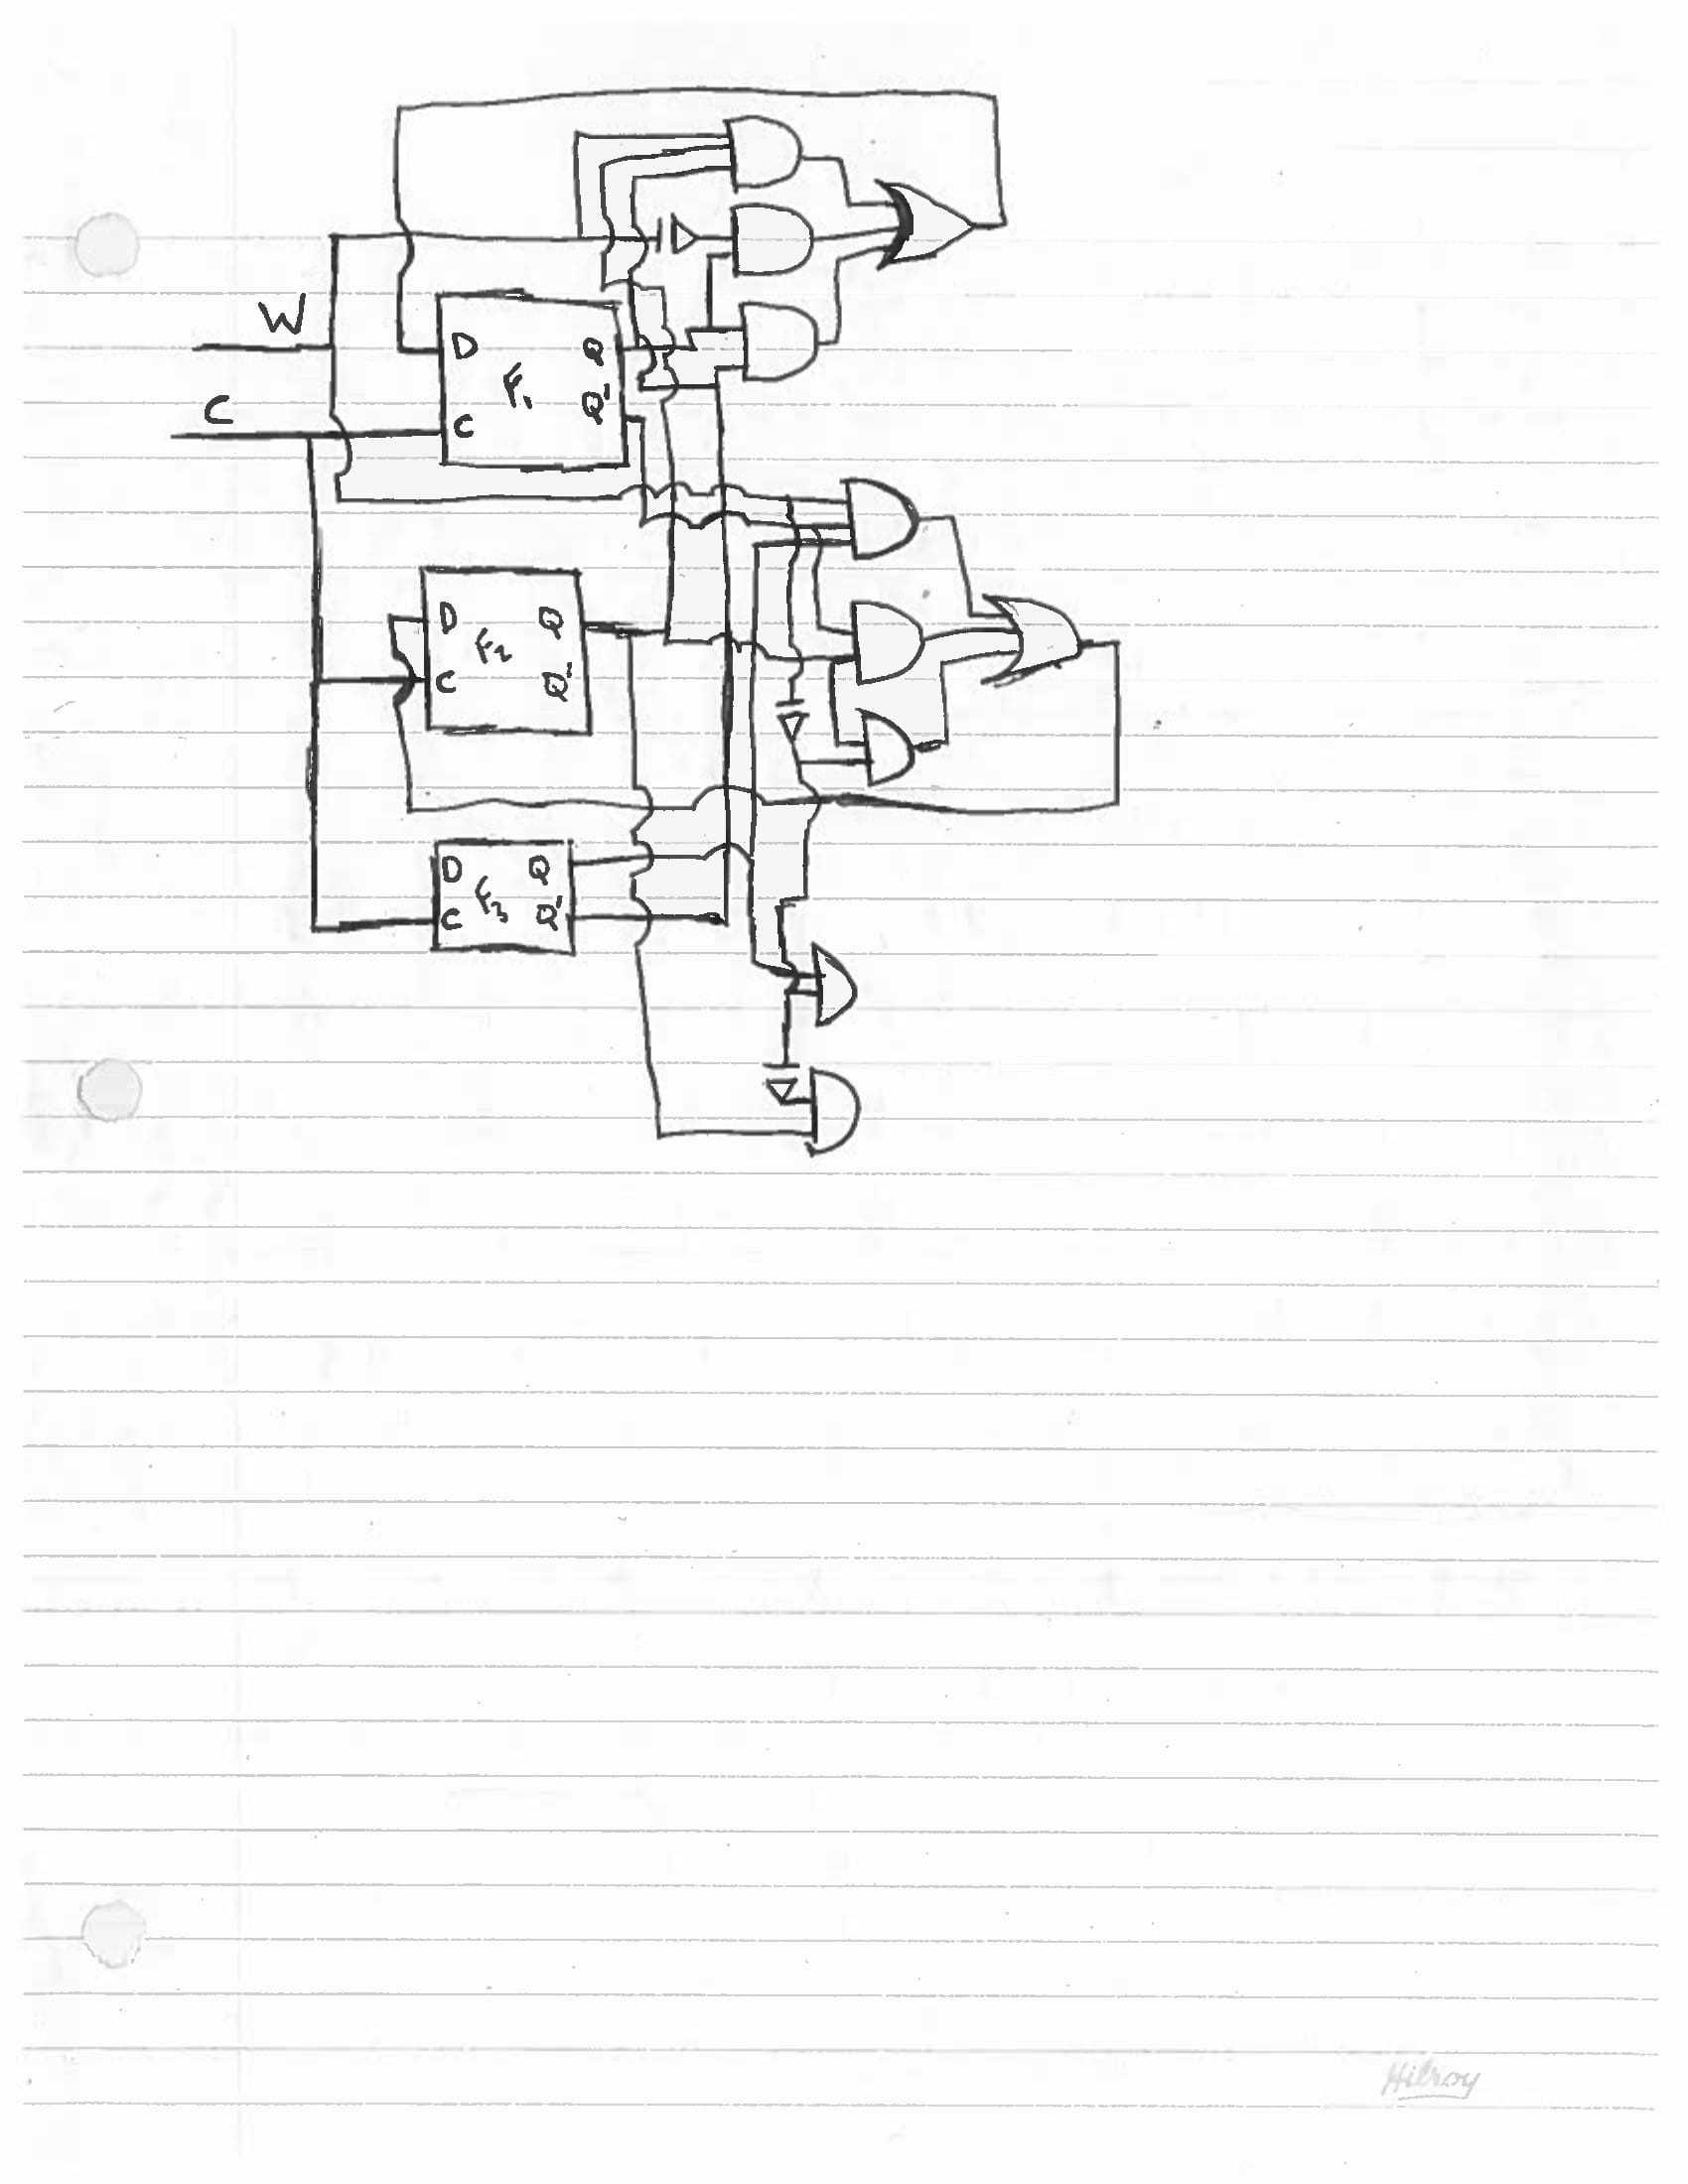 W
D Q
F₁
C Q'
C
D Q
F₂
C Q'
D Q
F₃
C Q'
Hilroy